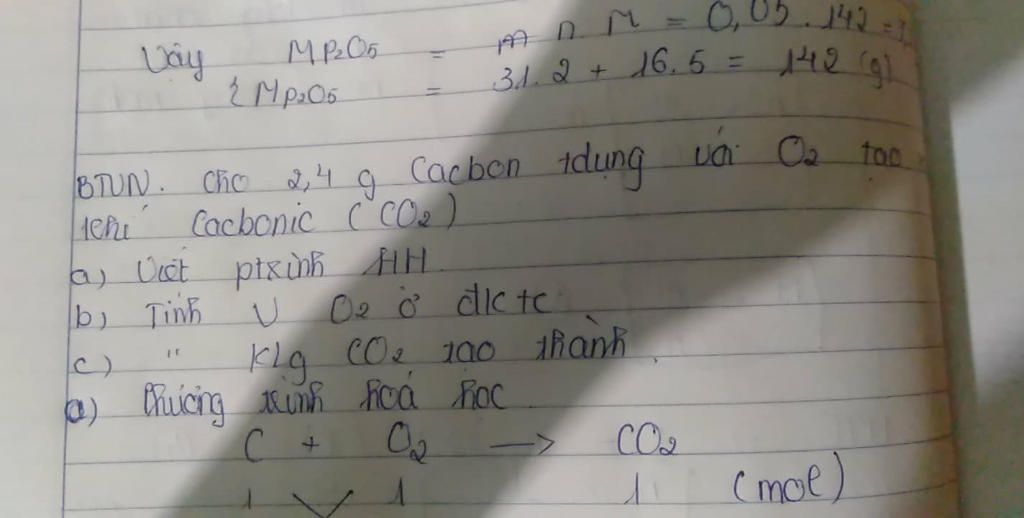 Vậy MP2O5 = m n M = 0,05. 142 =
MP2O5 = 31.2 + 16.5 = 142 (g)
BTVN. Cho 2,4 g Cacbon tdụng với O2 tạo
khí Cacbonic (CO2)
a) Viết ptrình HH
b) Tính V O2 ở đktc
c) " klg CO2 tạo thành.
a) Phương trình hoá học
C + O2 -> CO2
1 1 1 (mol)